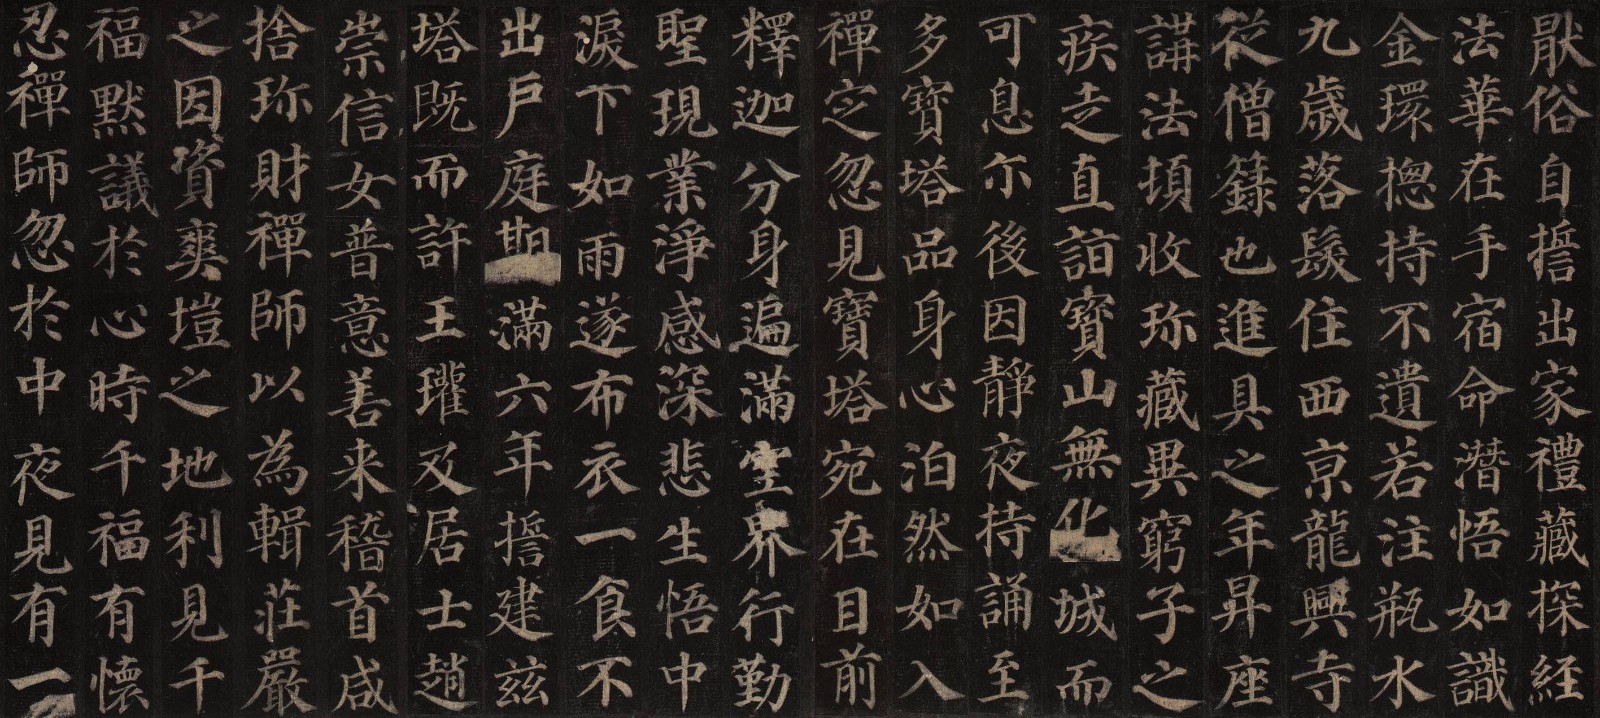 猒俗自誓出家禮藏探經
法華在手宿命潛悟如識
金環揔持不遺若注瓶水
九歲落髮住西京龍興寺
從僧籙也進具之年昇座
講法頃收珎藏異窮子之
疾走直詣寶山無化城而
可息尒後因靜夜持誦至
多寶塔品身心泊然如入
禪定忽見寶塔宛在目前
釋迦分身遍滿空界行勤
聖現業淨感深悲生悟中
淚下如雨遂布衣一食不
出戶庭期滿六年誓建茲
塔既而許王瓘及居士趙
崇信女普意善来稽首咸
捨珎財禪師以為輯莊嚴
之因資爽塏之地利見千
福默議於心時千福有懷
忍禪師忽於中夜見有一